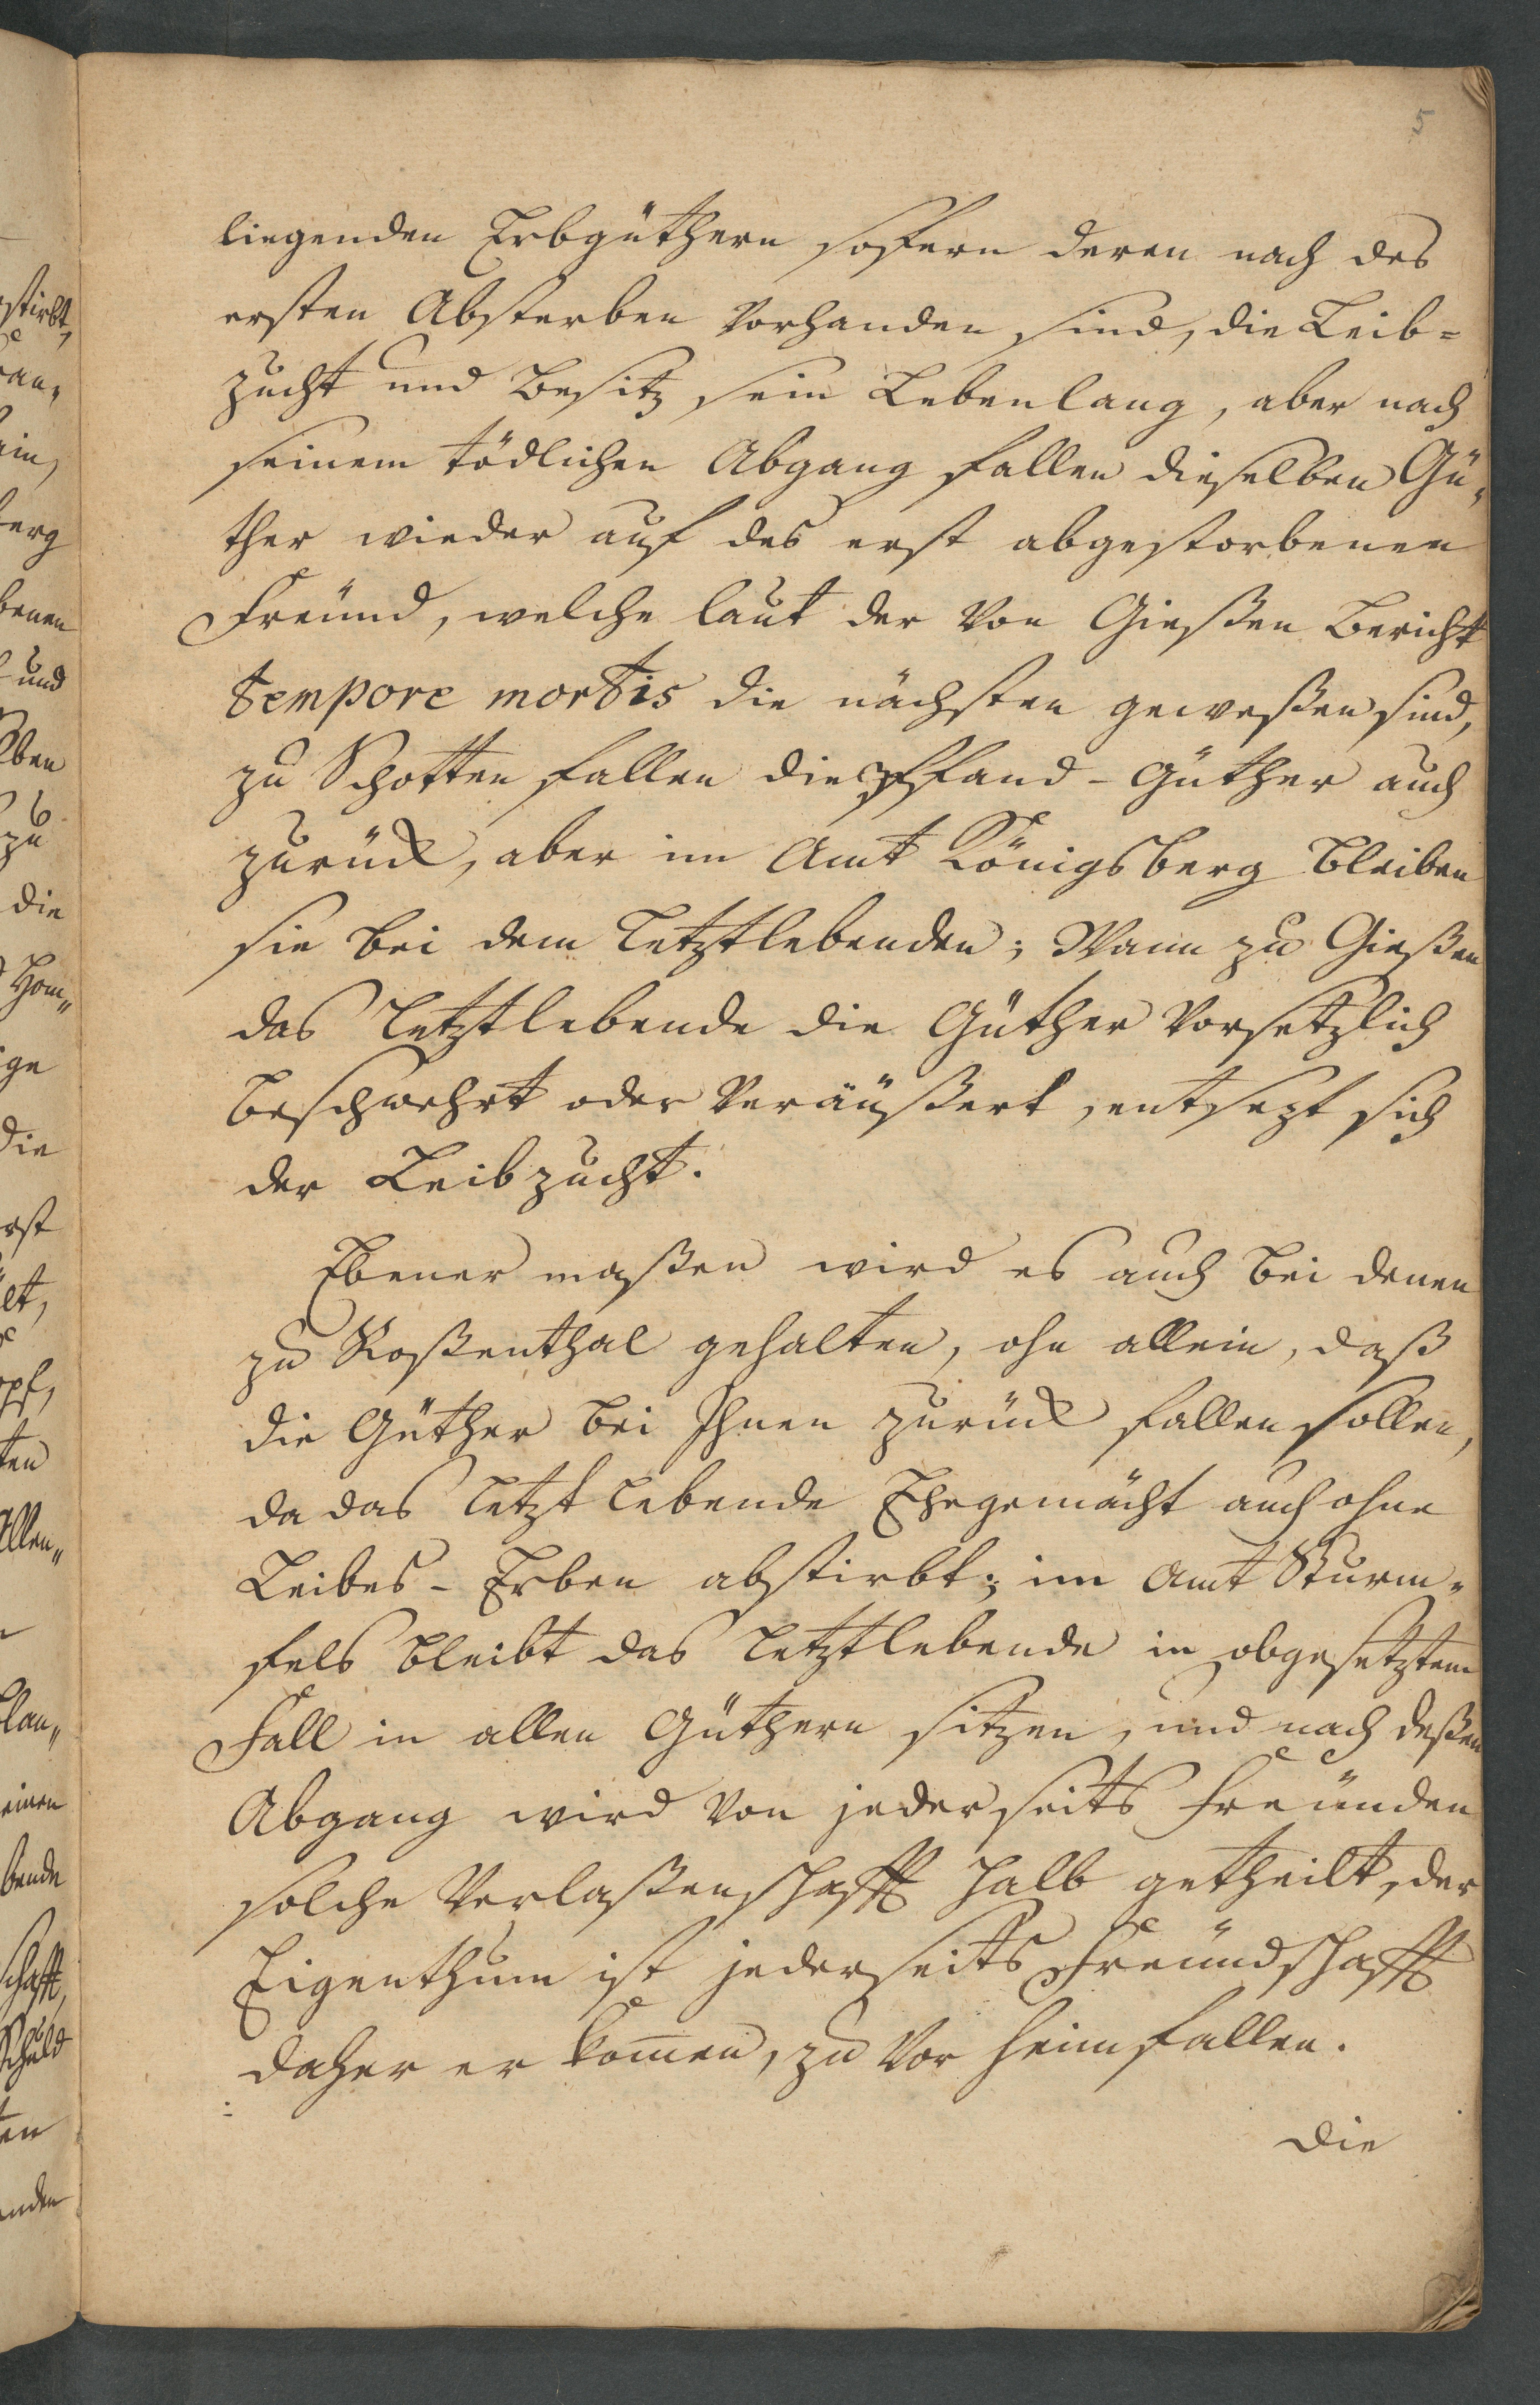 5
liegenden Erbgüthern soffern deren nach des
ersten Absterben vorhanden sind, die Leib=
zucht und Besitz sein Lebenlang, aber nach
seinem tödlichen Abgang fallen dieselben Gü„
ther wieder auf des erst abgestorbenen
Freund, welche laut der von Gießen Bericht
tempore mortis die nächsten geweßen sind,
zu Schotten fallen die Pfand-Güther auch
zurück, aber im Amt Königsberg bleiben
sie bei dem Letztlebenden; Wann zu Gießen
das Letztlebende die Güther vorsetzlich
beschwehrt oder veräußert, entsezt sich
der Leibzucht.
Ebener maßen wird es auch bei denen
zu Roßenthal gehalten, ohn allein, daß
die Güther bei Ihnen zurück fallen sollen,
da das letzt lebende Ehegemächt auch ohne
Leibes-Erben abstirbt; im Amt Sturm„
fels bleibt das Letztlebende in obgesetztem
Fall in allen Güthern sitzen, und nach deßen
Abgang wird von jederseits Freünden
solche Verlaßenschafft halb getheilt, der
Eigenthum ist jederseits Freündschafft
daher er kom̅en, zu vor heimfallen.
Die